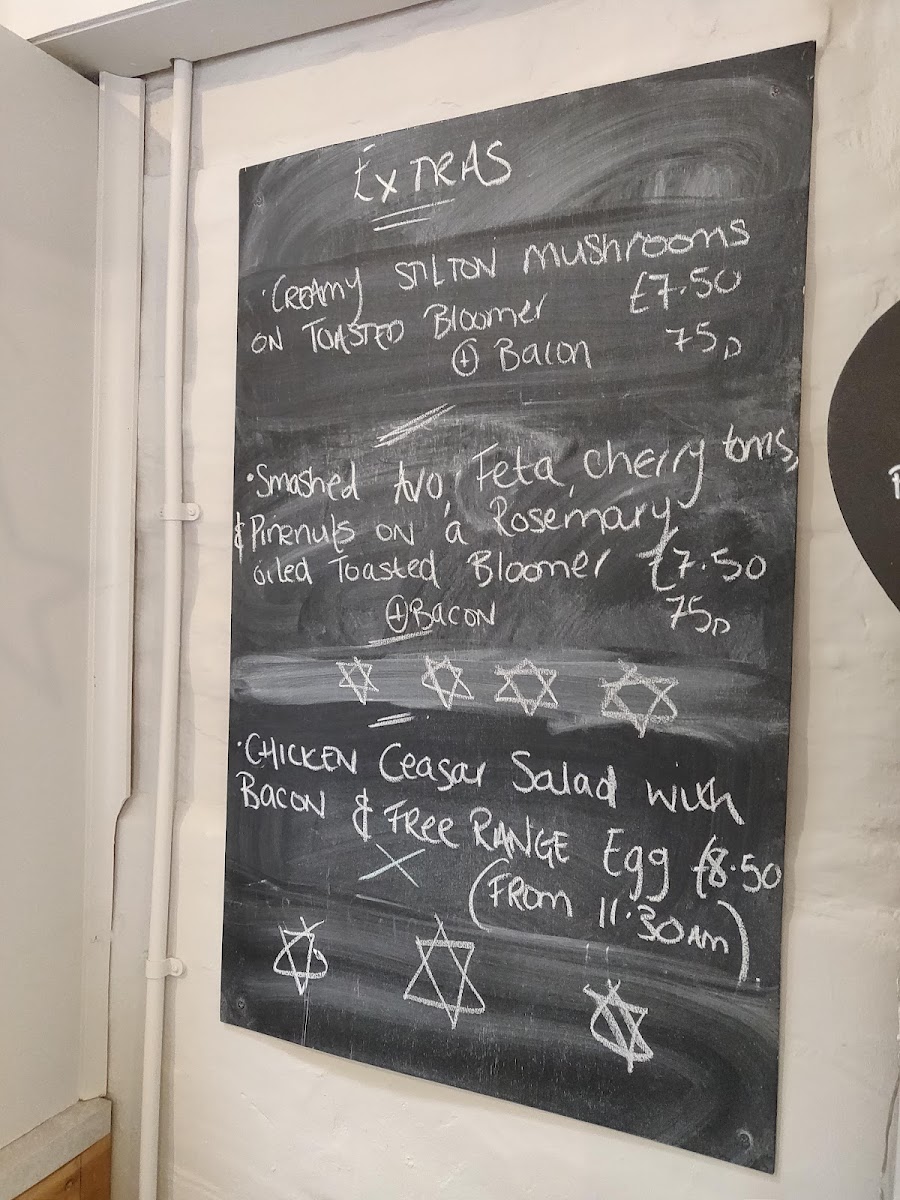 ExTRAS
· CREAMY STILTON mushrooms
ON TOASTED Bloomer £7.50
+ Bacon 75p
• Smashed Avo, Feta, cherry toms,
& Pinenuts ON a Rosemary
oiled Toasted Bloomer £7.50
+ BACON 75p
· CHICKEN Ceasar Salad with
BACON & FRee RANGE Egg £8.50
(FROM 11.30am).